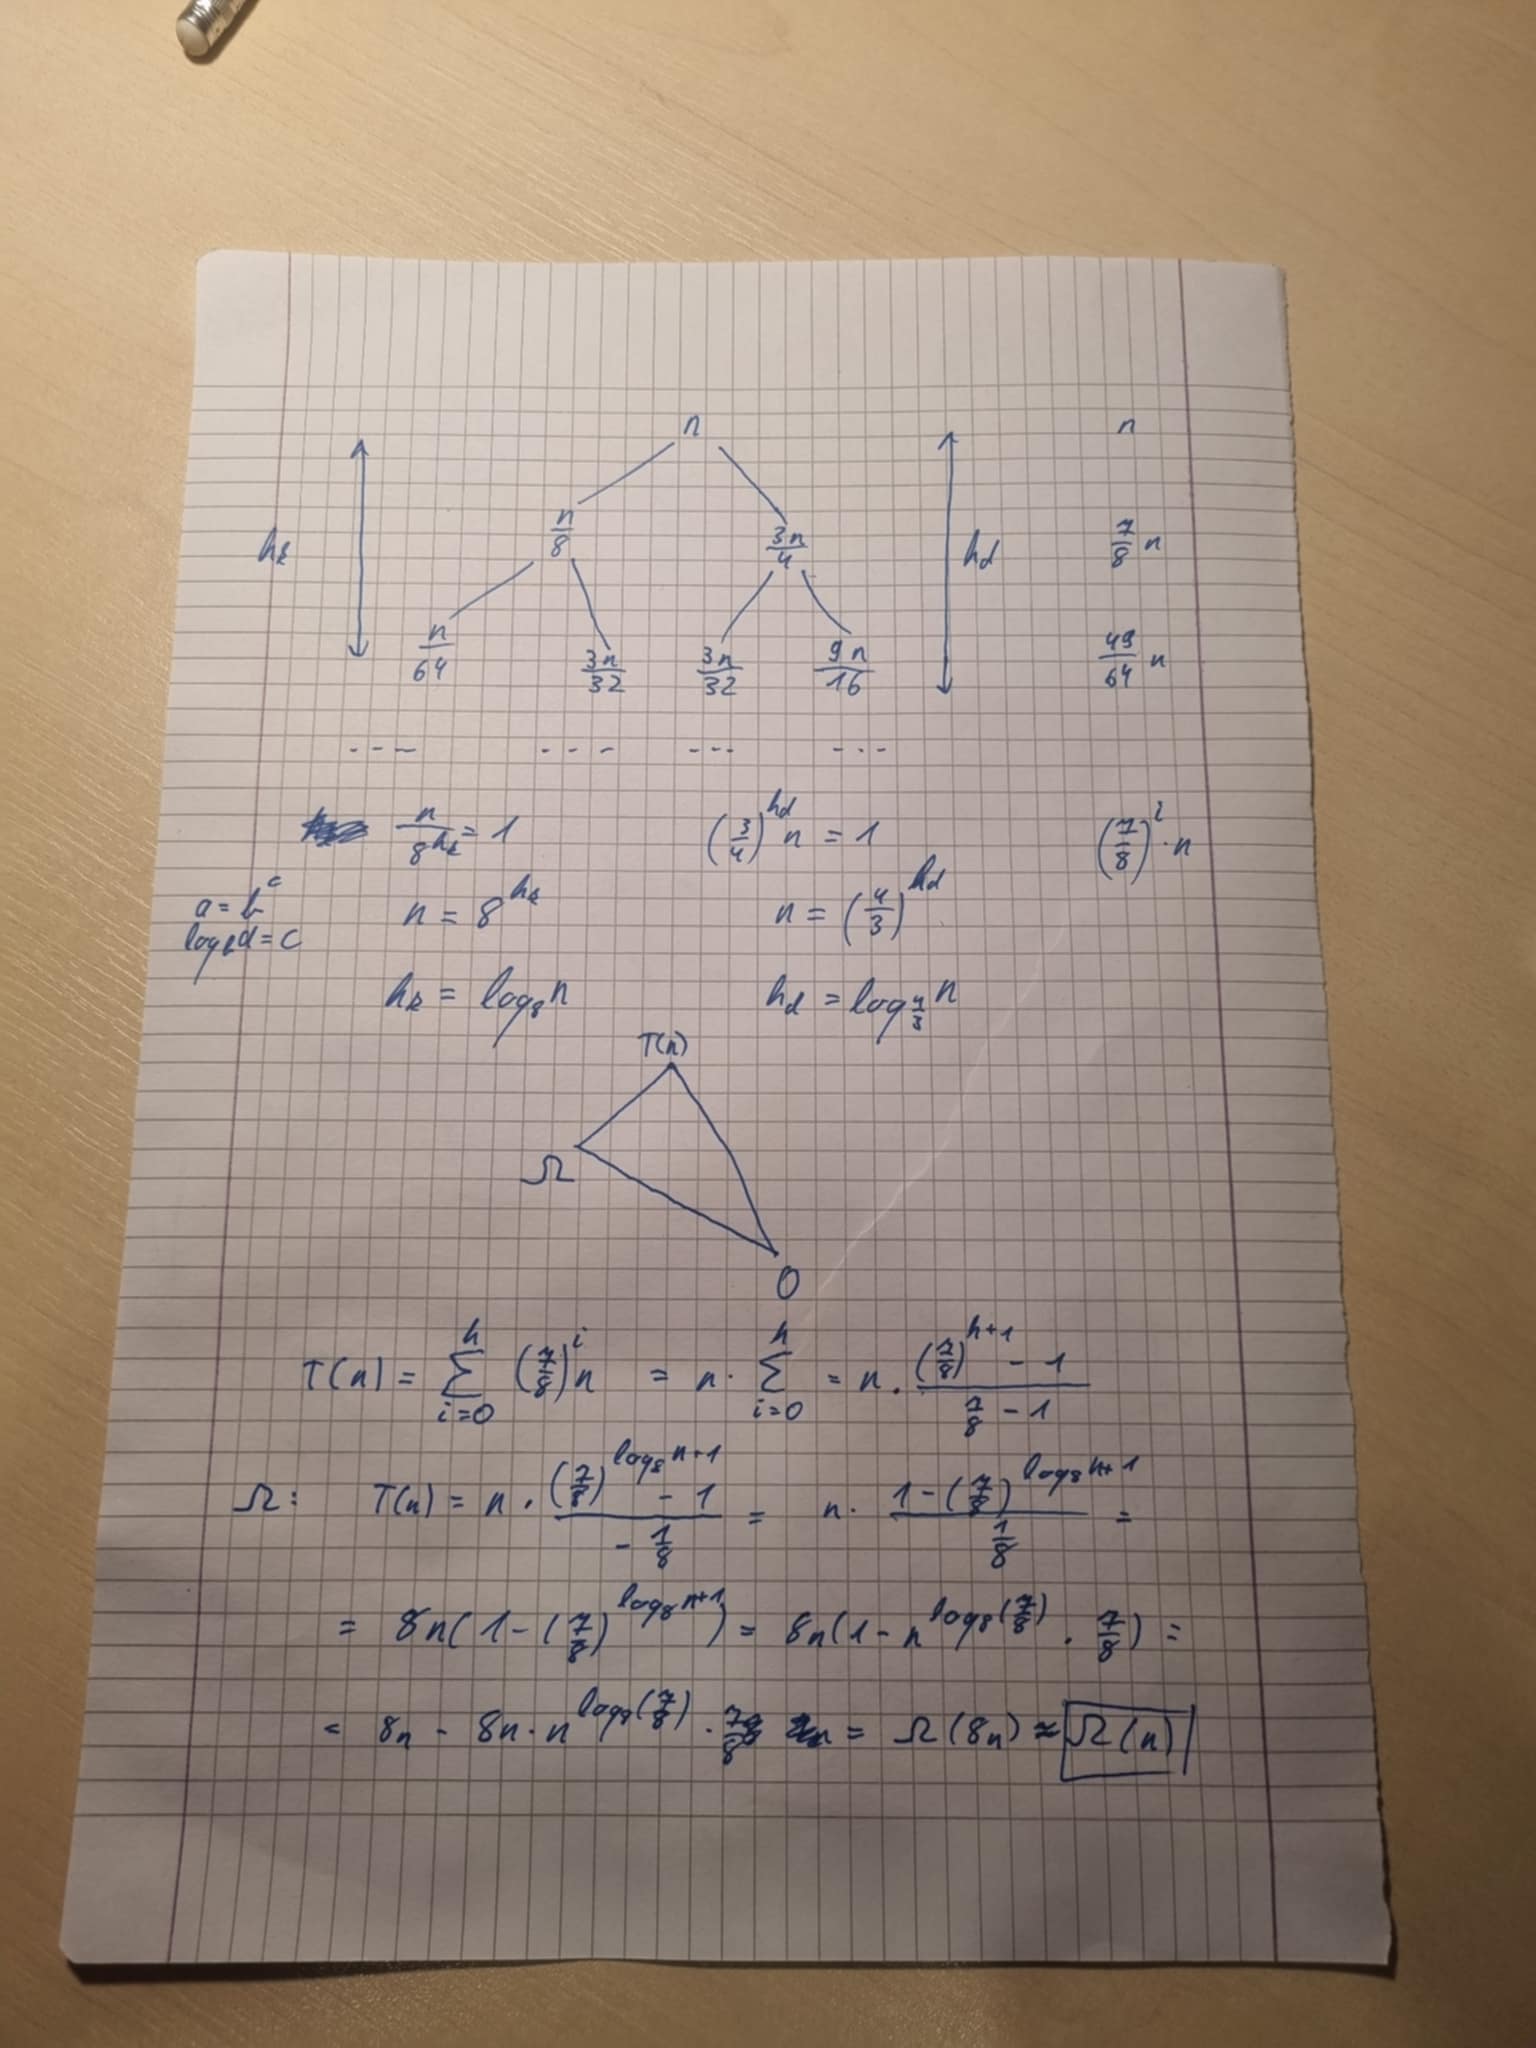 n n
n/8 3n/4 7/8 n
h_k h_d
n/64 3n/32 3n/32 9n/16 49/64 n
--- --- --- ---
n/8^(h_k) = 1 (3/4)^(h_d) n = 1 (7/8)^i · n
a = b^c n = 8^(h_k) n = (4/3)^(h_d)
log_b a = c
h_k = log_8 n h_d = log_(4/3) n
T(n)
Ω
O
T(n) = Σ_(i=0)^h (7/8)^i n = n · Σ_(i=0)^h = n · ((7/8)^(h+1) - 1)/(7/8 - 1)
Ω: T(n) = n · ((7/8)^(log_8 n+1) - 1)/(-1/8) = n · (1 - (7/8)^(log_8 n+1))/(1/8) =
= 8n(1 - (7/8)^(log_8 n+1)) = 8n(1 - n^(log_8(7/8)) · 7/8) =
= 8n - 8n · n^(log_8(7/8)) · 7/8 = Ω(8n) ≈ Ω(n)